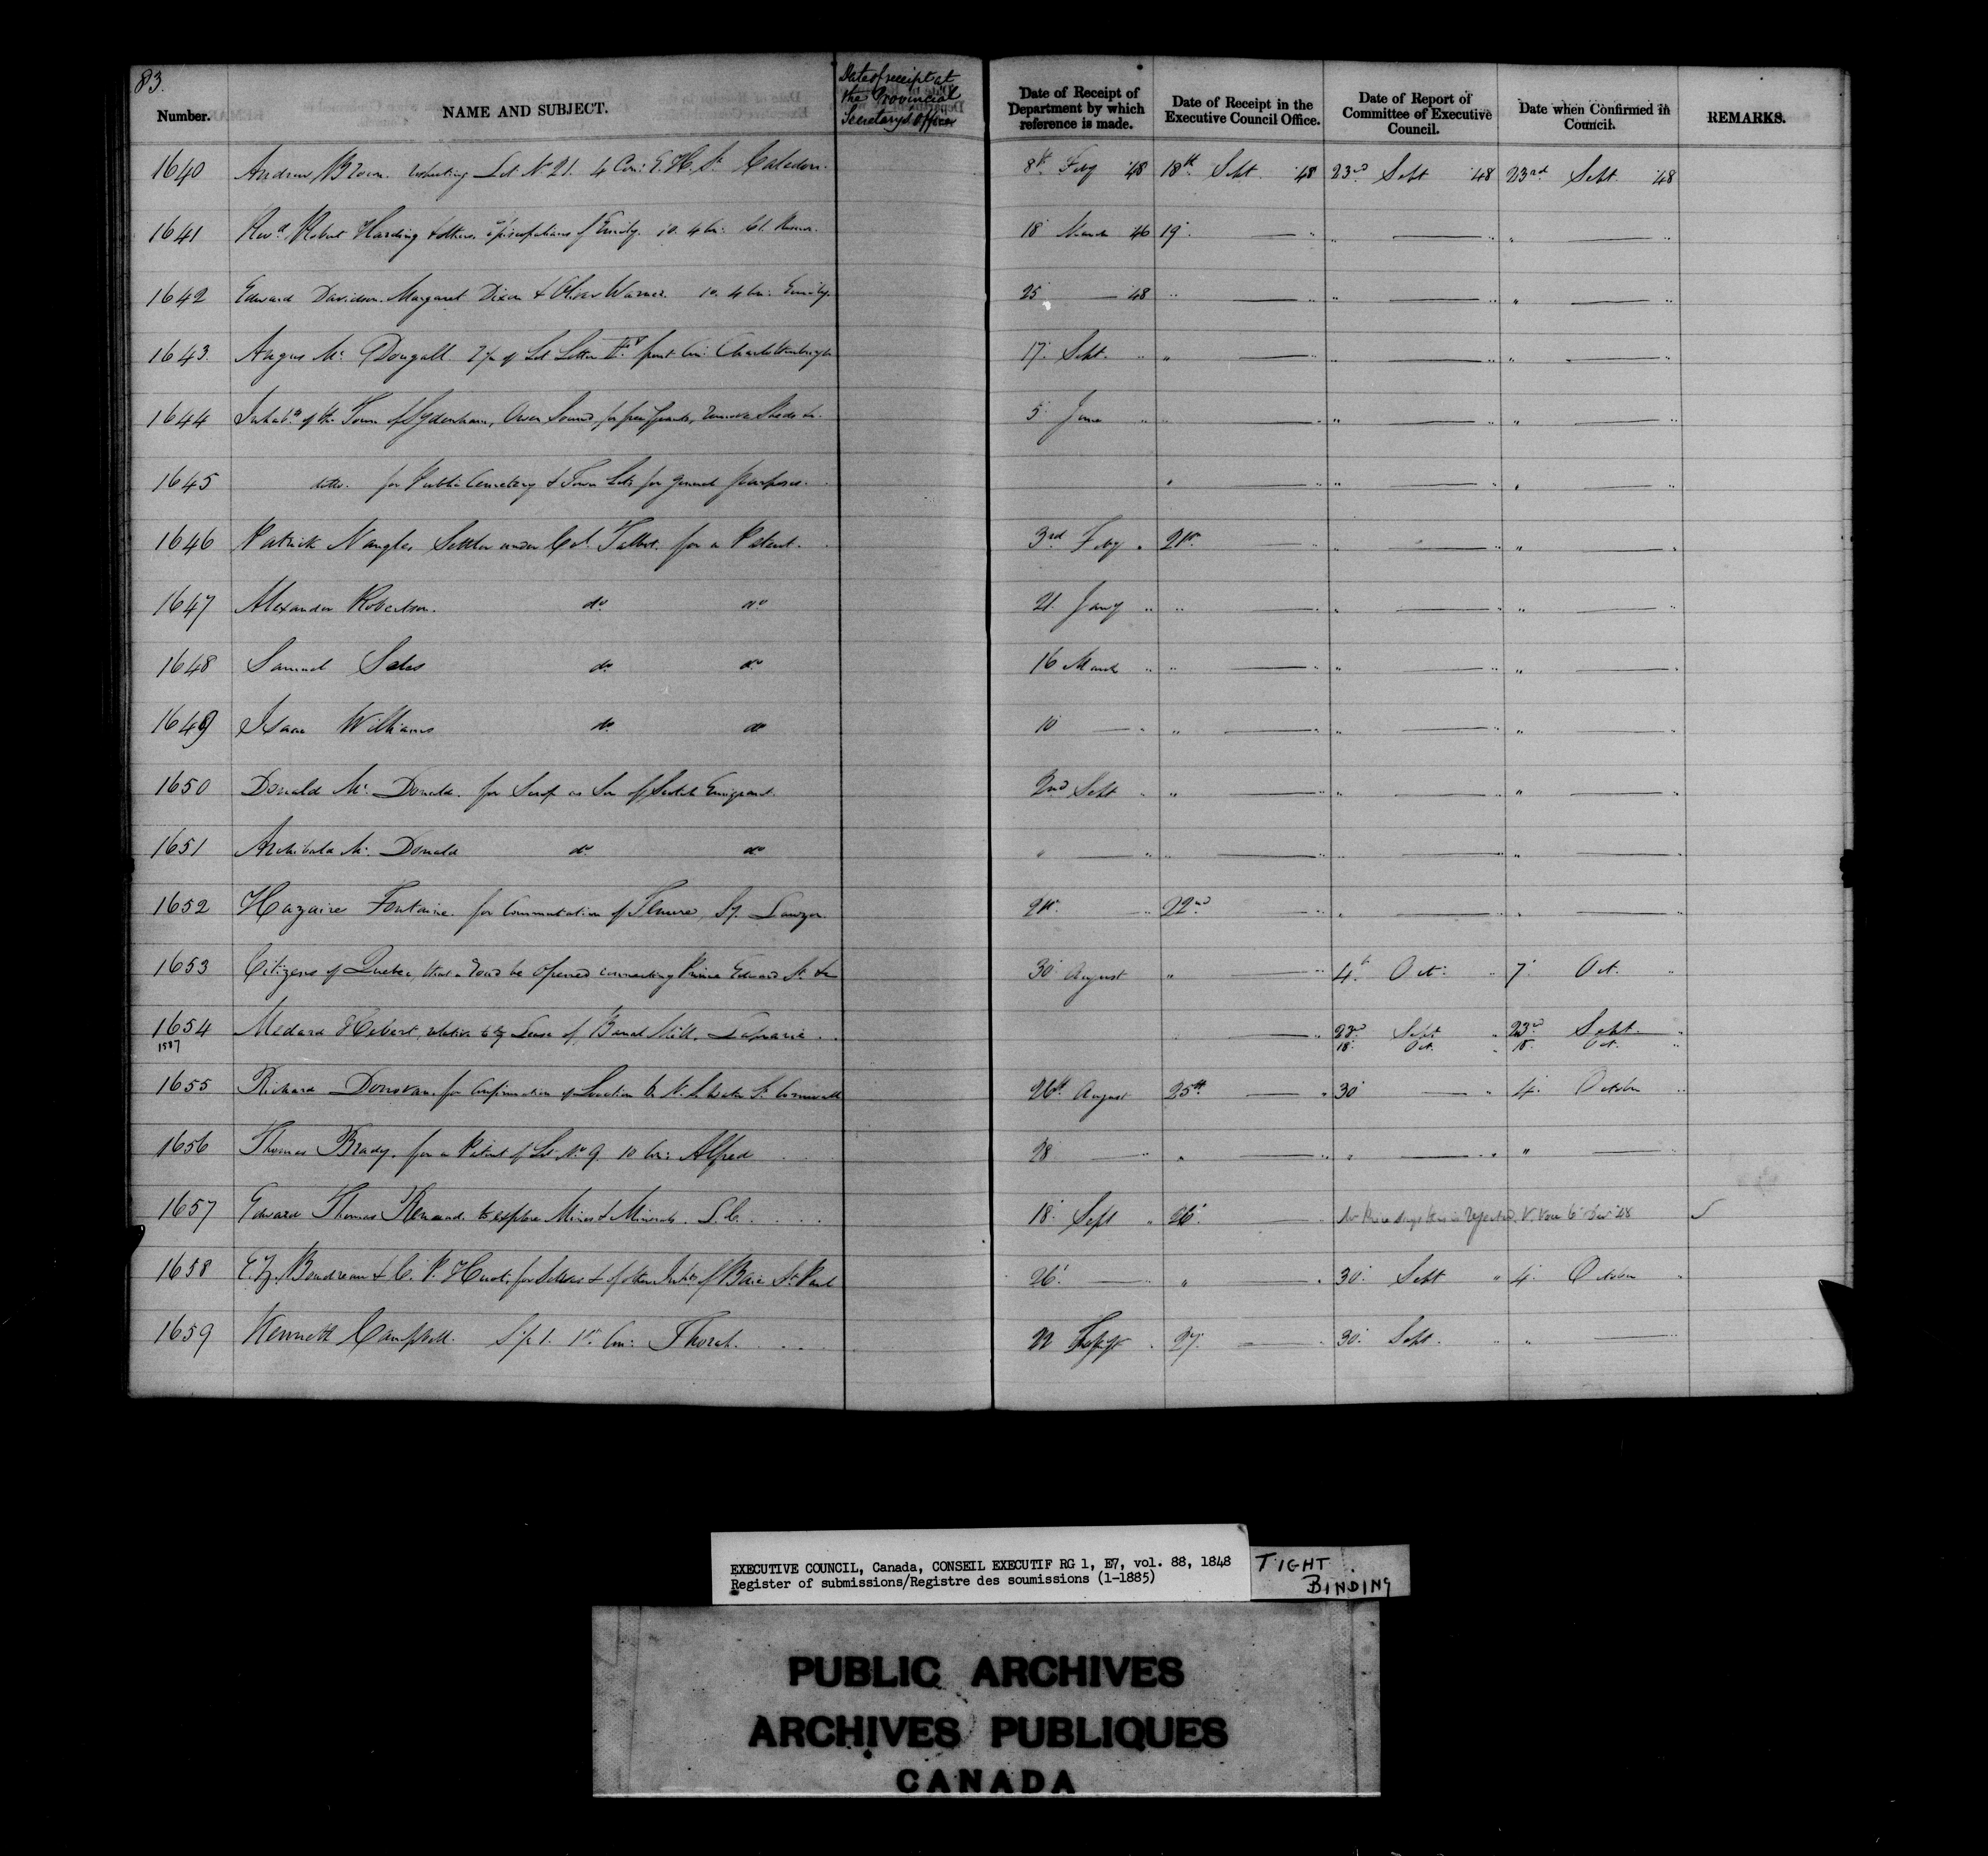 83.
Number. NAME AND SUBJECT. Date of receipt at the Provincial Secretary's Office Date of Receipt of Department by which reference is made. Date of Receipt in the Executive Council Office. Date of Report of Committee of Executive Council. Date when Confirmed in Council. REMARKS.
1640 Andrew Brown. Lot No 21. 4 Con: E. H. St. Caledon. 8th Feby '48 18th Sept. '48 23rd Sept '48 23rd Sept. '48
1641 Revd Robert Harding & others, Episcopalians of Emily. 10. 4 Con: Cl. Reserve. 18 March 46 19 — " " — " " — "
1642 Edward Davidson. Margaret Dixon & Oliver Warner. 10. 4 Con: Emily. 25 — 48 " — " " — " " — "
1643. Angus Mc Dougall of Lot Letter front Con: Charlottenburgh 17. Sept. " " — " " — " " — "
1644 Inhabts of the Town of Sydenham, Owen Sound, for free Grants, 5 June " " — " " — " " — "
1645 ditto. for Public Cemetery & Town Lots for general purposes. " — " " — " " — "
1646 Patrick Nangle, Settler under Col. Talbot. for a Patent. 3rd Feby " 21st — " " — " " — "
1647 Alexander Robertson. do do 21. Jany " " — " " — " " — "
1648 Samuel do do 16 March " " — " " — " " — "
1649 Isaac Williams do do 10 — " " — " " — " " — "
1650 Donald Mc Donald. for Scrip as Son of Scotch Emigrant. 2nd Sept " " — " " — " " — "
1651 Archibald Mc Donald do do " — " " — " " — " " — "
1652 Hazaire Fontaine. for Commutation of Tenure, Sy. Lauzon. 21st. — " 22nd — " " — " " — "
1653 Citizens of Quebec, that a road be opened connecting Prince Edward St. 30 August " — " 4th Oct: " 7 Oct. "
1654 Medard Hebert, relative to Lease of Banal Mill, Laprairie . . — " 22nd Sept " 23rd Sept. "
1587 18. Oct. " 18. Oct. "
1655 Richard Donovan for confirmation of Location Water St. Cornwall 26th August 25th — " 30 — " 4. October "
1656 Thomas Brady. for a Patent of Lot No 9. 10 Con: Alfred 28 — " " — " " — " " — "
1657 Edward Thomas to explore Mines & Minerals. L. C. . . . . 18. Sept " 26. — Rejected, 6 Dec '48 ✓
1658 Boudreau & C. P. Huot, for Selves & of other Inhts of Baie St. Paul 26. — " " — " 30. Sept " 4. October "
1659 Kenneth Campbell. S½ 1. 1st Con: Thorah. . . . 22 Sept " 27. — " 30. Sept. " " — "
EXECUTIVE COUNCIL, Canada, CONSEIL EXECUTIF RG 1, E7, vol. 88, 1848
Register of submissions/Registre des soumissions (1-1885)
TIGHT
BINDING
PUBLIC ARCHIVES
ARCHIVES PUBLIQUES
CANADA